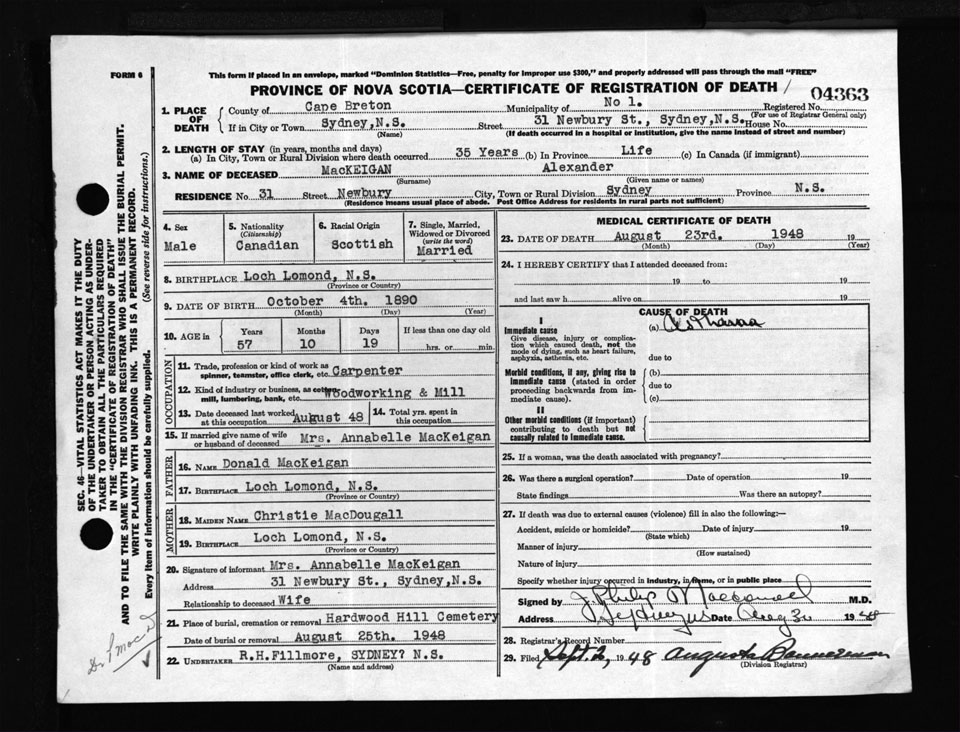 FORM 6
This form if placed in an envelope, marked "Dominion Statistics—Free, penalty for improper use $300," and properly addressed will pass through the mail "FREE"
PROVINCE OF NOVA SCOTIA—CERTIFICATE OF REGISTRATION OF DEATH
04363
1. PLACE OF DEATH
County of Cape Breton Municipality of No 1. Registered No.
(For use of Registrar General only)
If in City or Town Sydney,N.S. Street 31 Newbury St., Sydney,N.S. House No.
(Name) (If death occurred in a hospital or institution, give the name instead of street and number)
2. LENGTH OF STAY (in years, months and days)
(a) In City, Town or Rural Division where death occurred 35 Years (b) In Province Life (c) In Canada (if immigrant)
3. NAME OF DECEASED MacKEIGAN Alexander
(Surname) (Given name or names)
RESIDENCE No. 31 Street Newbury City, Town or Rural Division Sydney Province N.S.
(Residence means usual place of abode. Post Office Address for residents in rural parts not sufficient)
4. Sex
Male
5. Nationality
(Citizenship)
Canadian
6. Racial Origin
Scottish
7. Single, Married, Widowed or Divorced
(write the word)
Married
8. BIRTHPLACE Loch Lomond, N.S.
(Province or Country)
9. DATE OF BIRTH October 4th. 1890
(Month) (Day) (Year)
10. AGE in
Years Months Days If less than one day old
57 10 19 hrs. or min.
OCCUPATION
11. Trade, profession or kind of work as spinner, teamster, office clerk, etc. Carpenter
12. Kind of industry or business, as cotton mill, lumbering, bank, etc. Woodworking & Mill
13. Date deceased last worked at this occupation August 48
14. Total yrs. spent in this occupation
15. If married give name of wife or husband of deceased Mrs. Annabelle MacKeigan
FATHER
16. NAME Donald MacKeigan
17. BIRTHPLACE Loch Lomond, N.S.
(Province or Country)
MOTHER
18. MAIDEN NAME Christie MacDougall
19. BIRTHPLACE Loch Lomond, N.S.
(Province or Country)
20. Signature of informant Mrs. Annabelle MacKeigan
Address 31 Newbury St., Sydney,N.S.
Relationship to deceased Wife
21. Place of burial, cremation or removal Hardwood Hill Cemetery
Date of burial or removal August 25th. 1948
22. UNDERTAKER R.H.Fillmore, SYDNEY? N.S.
(Name and address)
MEDICAL CERTIFICATE OF DEATH
23. DATE OF DEATH August 23rd. 1948 19
(Month) (Day) (Year)
24. I HEREBY CERTIFY that I attended deceased from:
19 to 19
and last saw h alive on 19
CAUSE OF DEATH
I
Immediate cause
Give disease, injury or complication which caused death, not the mode of dying, such as heart failure, asphyxia, asthenia, etc.
(a) Asthma
due to
Morbid conditions, if any, giving rise to immediate cause (stated in order proceeding backwards from immediate cause).
(b)
due to
(c)
II
Other morbid conditions (if important) contributing to death but not causally related to immediate cause.
25. If a woman, was the death associated with pregnancy?
26. Was there a surgical operation? Date of operation 19
State findings Was there an autopsy?
27. If death was due to external causes (violence) fill in also the following:—
Accident, suicide or homicide? Date of injury 19
(State which)
Manner of injury
(How sustained)
Nature of injury
Specify whether injury occurred in industry, in home, or in public place
Signed by J. Philip Macdonald M.D.
Address Date Aug 30 1948
28. Registrar's Record Number
29. Filed Sept. 2, 1948 Augusta Bannerman
(Division Registrar)
SEC. 46—VITAL STATISTICS ACT MAKES IT THE DUTY
OF THE UNDERTAKER OR PERSON ACTING AS UNDER-
TAKER TO OBTAIN ALL THE PARTICULARS REQUIRED
IN THE "CERTIFICATE OF REGISTRATION OF DEATH"
AND TO FILE THE SAME WITH THE DIVISION REGISTRAR WHO SHALL ISSUE THE BURIAL PERMIT.
WRITE PLAINLY WITH UNFADING INK. THIS IS A PERMANENT RECORD.
Every item of information should be carefully supplied. (See reverse side for instructions.)